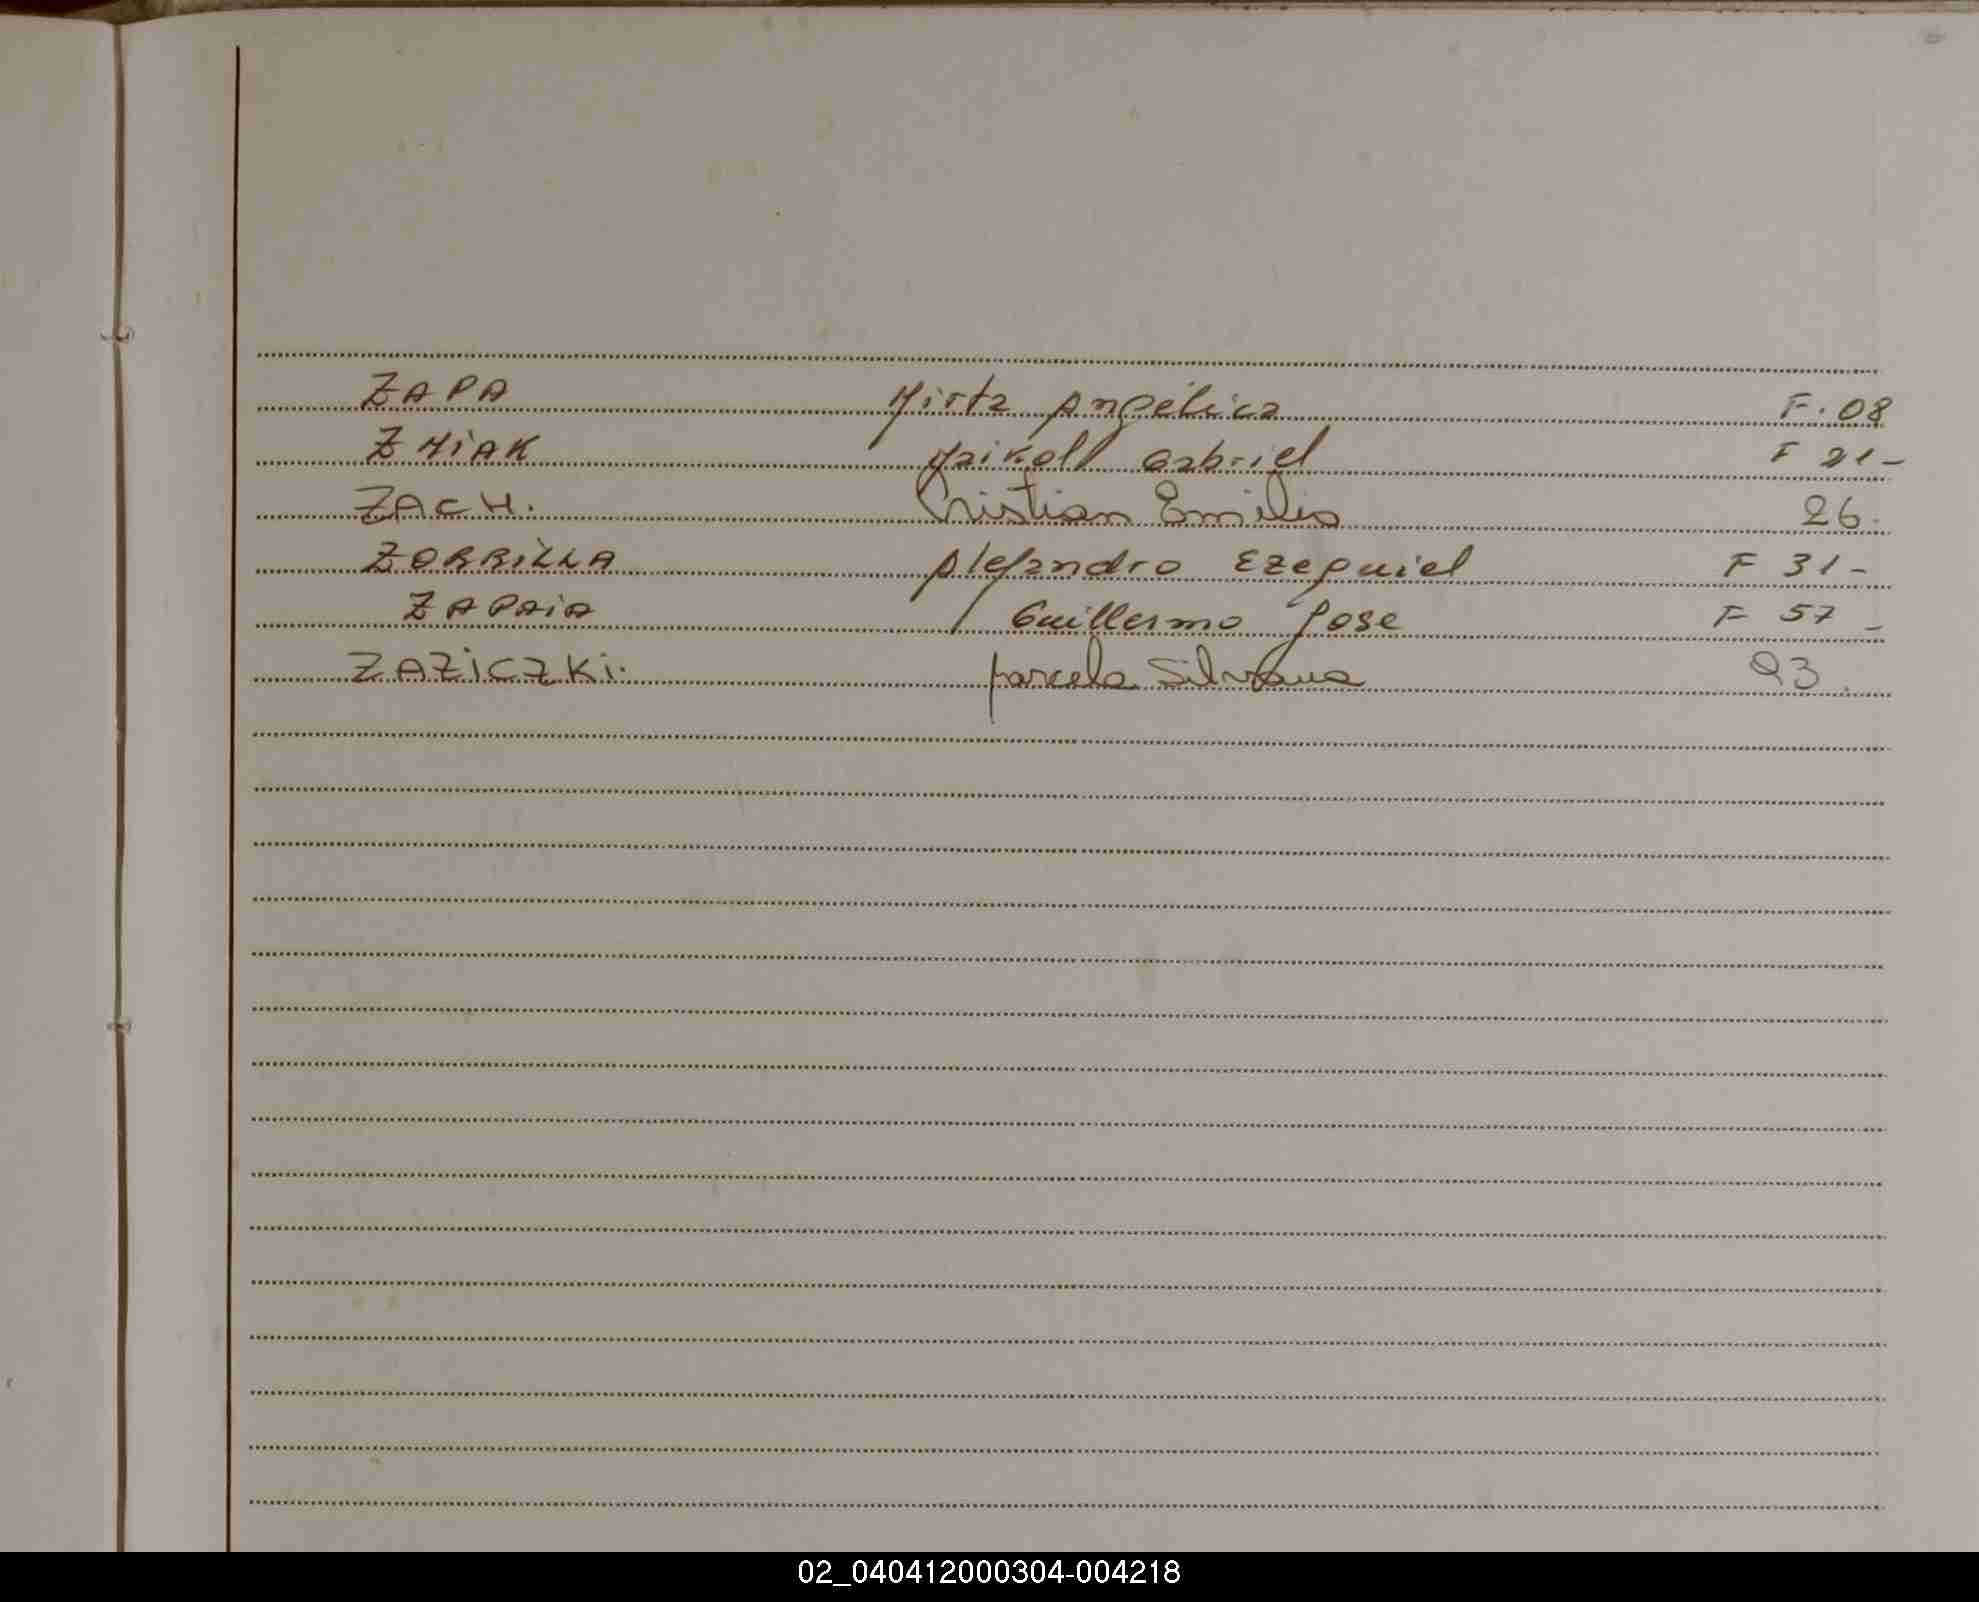 ZAPA Mirta Angélica F. 08
ZMiAK Maikoll Gabriel F 21-
ZACH. Cristian Emilio 26.
ZORRiLLA Alejandro Ezequiel F 31-
ZAPAiA Guillermo Jose F 57 -
ZAZiCZKi. Marcela Silvana 93.
02_040412000304-004218